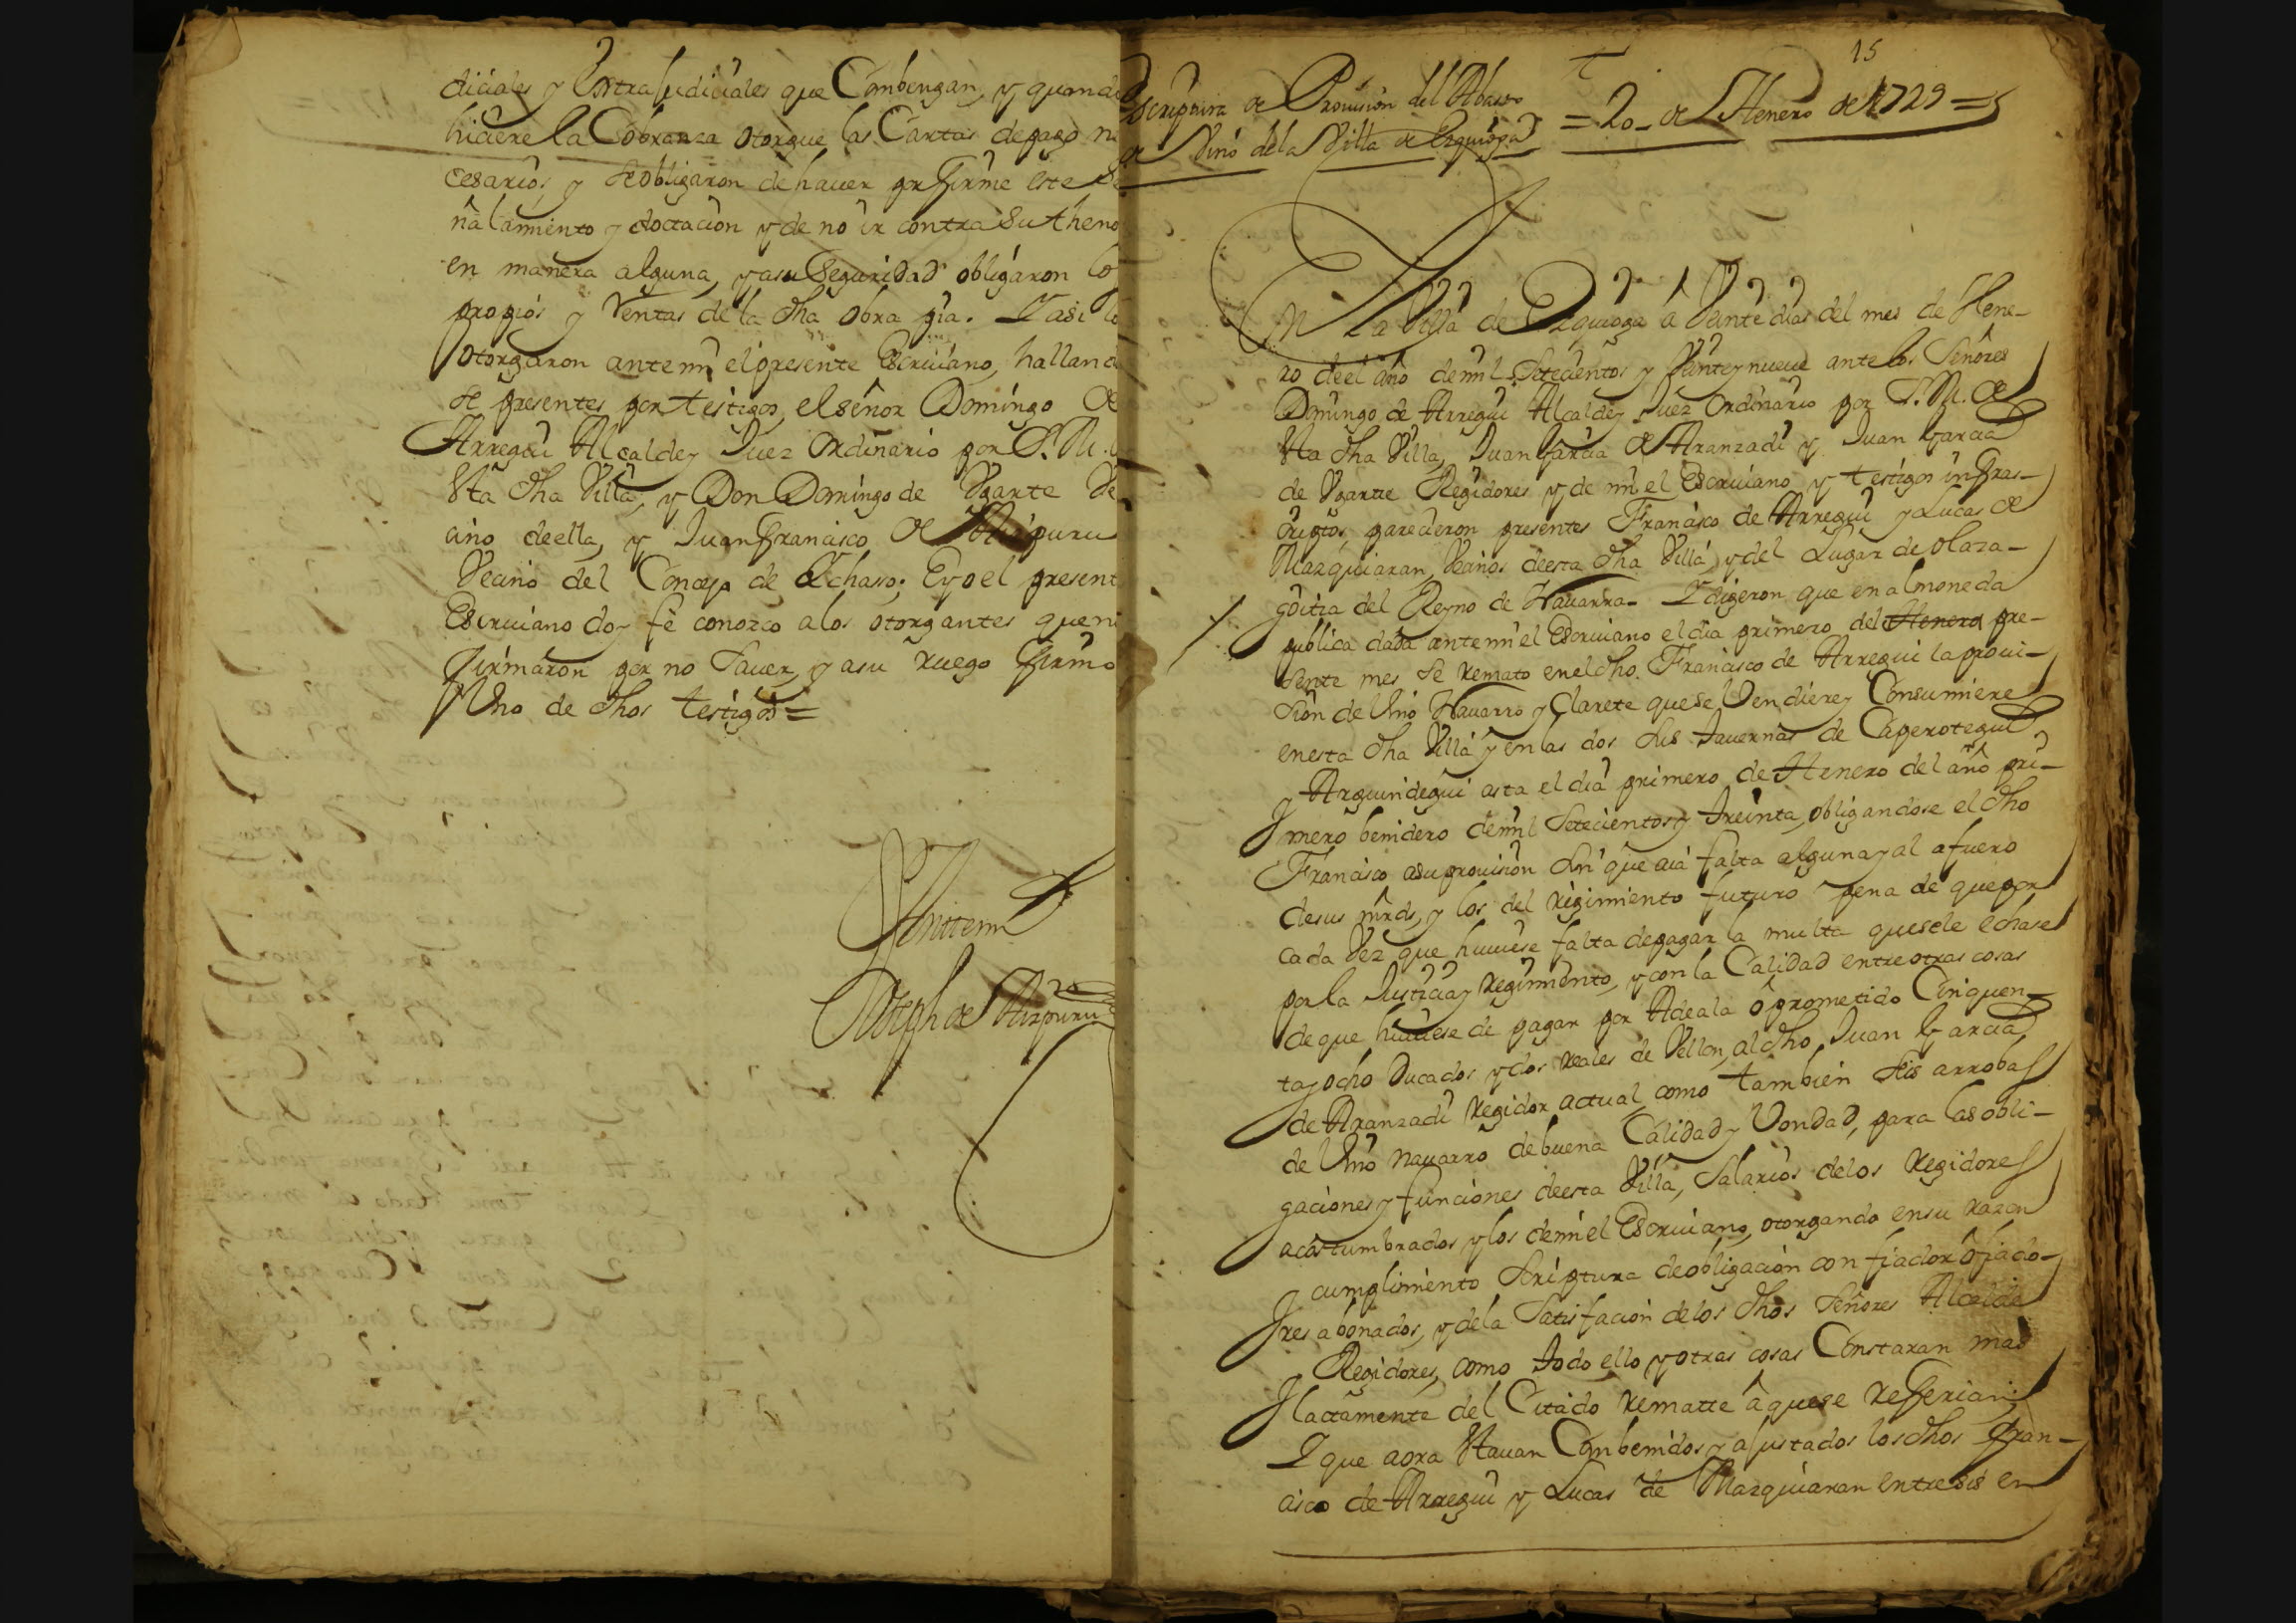 diciales y Extrajudiciales que Combengan, y quando
hiciere la Cobranza otorgue las Cartas de pago ne
cesarios, y se obligaron de haver por firme este se
ñalamiento y doctacion y de no ir contra su theno
en manera alguna, y a su Seguridad obligaron lo
propios y Rentas de la dha obra pia. Y asi lo
otorgaron ante mi el presente Escrivano, halland
se presentes por testigos, el señor Domingo de
Arregui Alcalde y Juez ordinario por S.M.
Esta dha Villa, y Don Domingo de Ugarte Ve
cino de ella, y Juan francisco de Aizpuru
Vecino del Concejo de Ychasso; Eyo el present
Escrivano doy fe conozco a los otorgantes que no
firmaron por no Saver, y a su ruego firmo
Uno de dhos testigos =
Antte mi
Joseph de Aizpuru
15
Escriptura de Provision del Abasto
de Vino de la Villa de Ezquioga
= 20 - de Henero de 1729 =
En La Villa de Ezquioga a Veinte dias del mes de Hene-
ro de el año de mil Setecientos y Veinte y nueve ante los Señores
Domingo de Arregui Alcalde y Juez ordinario por S.M. de
Esta dha Villa, Juan Garcia de Aranzadi y Juan Garcia
de Ugarte Regidores y de mi el Escrivano y testigos infras-
criptos, parecieron presentes Francisco de Arregui y Lucas de
Mazquiaran, Vecinos de esta dha Villa y del Lugar de Olaza-
goitia del Reyno de Navarra - Y digeron que en almoneda
publica dada ante mi el Escrivano el dia primero del Henero pre-
sente mes se remato en el dho Francisco de Arregui la provi-
sion de Vino Navarro y Clarete que se Vendiere y Consumiere
en esta dha Villa y en las dos sus tavernas de Caperotegui
y Arguindegui asta el dia primero de Henero del año pri-
mero benidero de mil Setecientos y treinta, obligandose el dho
Francisco a su provision sin que aia falta alguna y al afuero
de sus mrds, y los del regimiento futuro pena de que por
cada Vez que huviese falta de pagar la multa que se le echase
por la Justicia y regimiento, y con la Calidad entre otras cosas
de que huviese de pagar por Adeala ô prometido Cinquen-
ta y ocho Ducados y dos reales de Vellon, al dho Juan Garcia
de Aranzadi regidor actual, como tambien seis arrobas
de Vino navarro de buena Calidad y Vondad, para las obli-
gaciones y funciones de esta Villa, Salarios de los regidores
acostumbrados y los de mi el Escrivano, otorgando en su razon
y cumplimiento Scriptura de obligacion con fiador ô fiado-
res abonados, y de la Satisfacion de los dhos Señores Alcalde
y Regidores, como todo ello y otras cosas Constaran mas
lactamente del Citado rematte â que se refferian;
Y que aora Estavan Combenidos y ajustados los dhos Fran-
cisco de Arregui y Lucas de Mazquiaran entre sis en